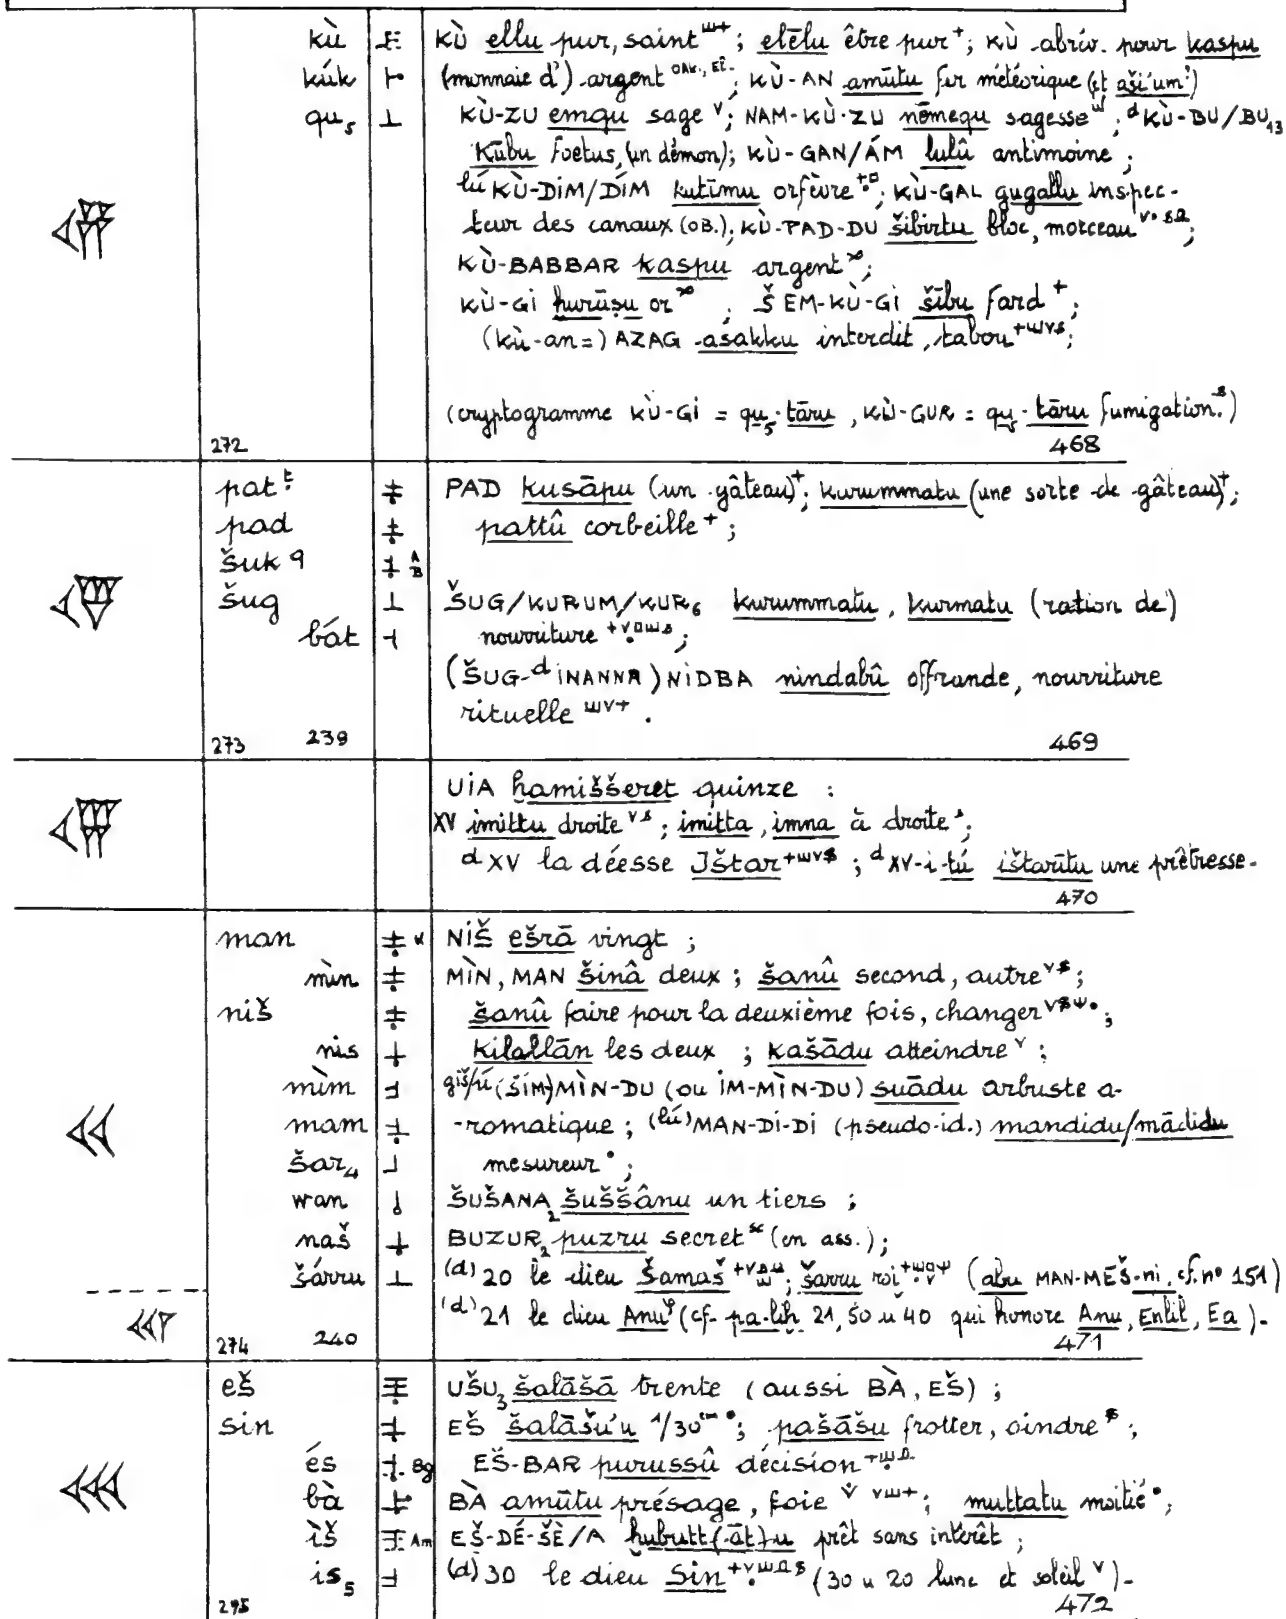 kù KÙ ellu pur, saint; elēlu être pur; KÙ abrév. pour kaspu
kúk (monnaie d') argent; KÙ-AN amūtu fer météorique (et aši'um?)
qu₅ KÙ-ZU emqu sage; NAM-KÙ-ZU nēmequ sagesse; ᵈKÙ-BU/BU₁₃
Kūbu foetus, (un démon); KÙ-GAN/ÁM lulû antimoine;
lú KÙ-DIM/DÍM kutīmu orfèvre; KÙ-GAL gugallu inspec-
teur des canaux (OB.); KÙ-PAD-DU šibirtu bloc, morceau;
KÙ-BABBAR kaspu argent;
KÙ-GI ḫurāṣu or; ŠEM-KÙ-GI šību fard;
(kù-an=) AZAG asakku interdit, tabou;
(cryptogramme KÙ-GI = qu₅-tāru, KÙ-GUR = qu₅-tāru fumigation.)
272 468
pat PAD kusāpu (un gâteau); kurummatu (une sorte de gâteau);
pad pattû corbeille;
šuk 9
šug ŠUG/KURUM/KUR₆ kurummatu, kurmatu (ration de)
bát nourriture;
(ŠUG-ᵈINANNA) NIDBA nindabû offrande, nourriture
rituelle.
273 239 469
UIA ḫamiššeret quinze :
XV imittu droite; imitta, imna à droite;
ᵈXV la déesse Ištar; ᵈXV-i-tú ištarītu une prêtresse.
470
man NIŠ ešrā vingt;
mìn MÌN, MAN šinâ deux; šanû second, autre;
niš šanû faire pour la deuxième fois, changer;
nis kilallān les deux; kašādu atteindre;
mìm giš/ú (ŠIM) MÌN-DU (ou IM-MÌN-DU) suādu arbuste a-
mam -romatique; (lú) MAN-DI-DI (pseudo-id.) mandidu/mādidu
šar₄ mesureur;
wan ŠUŠANA₂ šuššānu un tiers;
naš BUZUR₂ puzru secret (en ass.);
šárru (d) 20 le dieu Šamaš; šarru roi (abu MAN-MEŠ-ni, cf. nº 151)
(d) 21 le dieu Anu (cf. pa-liḫ 21, 50 u 40 qui honore Anu, Enlil, Ea).
274 240 471
eš UŠU₃ šalāšā trente (aussi BÀ, EŠ);
sin EŠ šalāšu'u 1/30ᵉᵐ; pašāšu frotter, oindre;
és Bg EŠ-BAR purussû décision
bà BÀ amūtu présage, foie; muttatu moitié;
ìš Am EŠ-DÉ-ŠÈ/A ḫubutt(āt)u prêt sans intérêt;
is₅ (d) 30 le dieu Sin (30 u 20 lune et soleil).
295 472